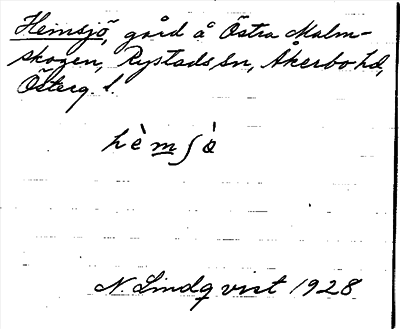 Hemsjö, gård å Östra Malm-
skogen, Rystads sn, Åkerbo hd,
Österg. l.
hèmʃò
N. Lindqvist 1928